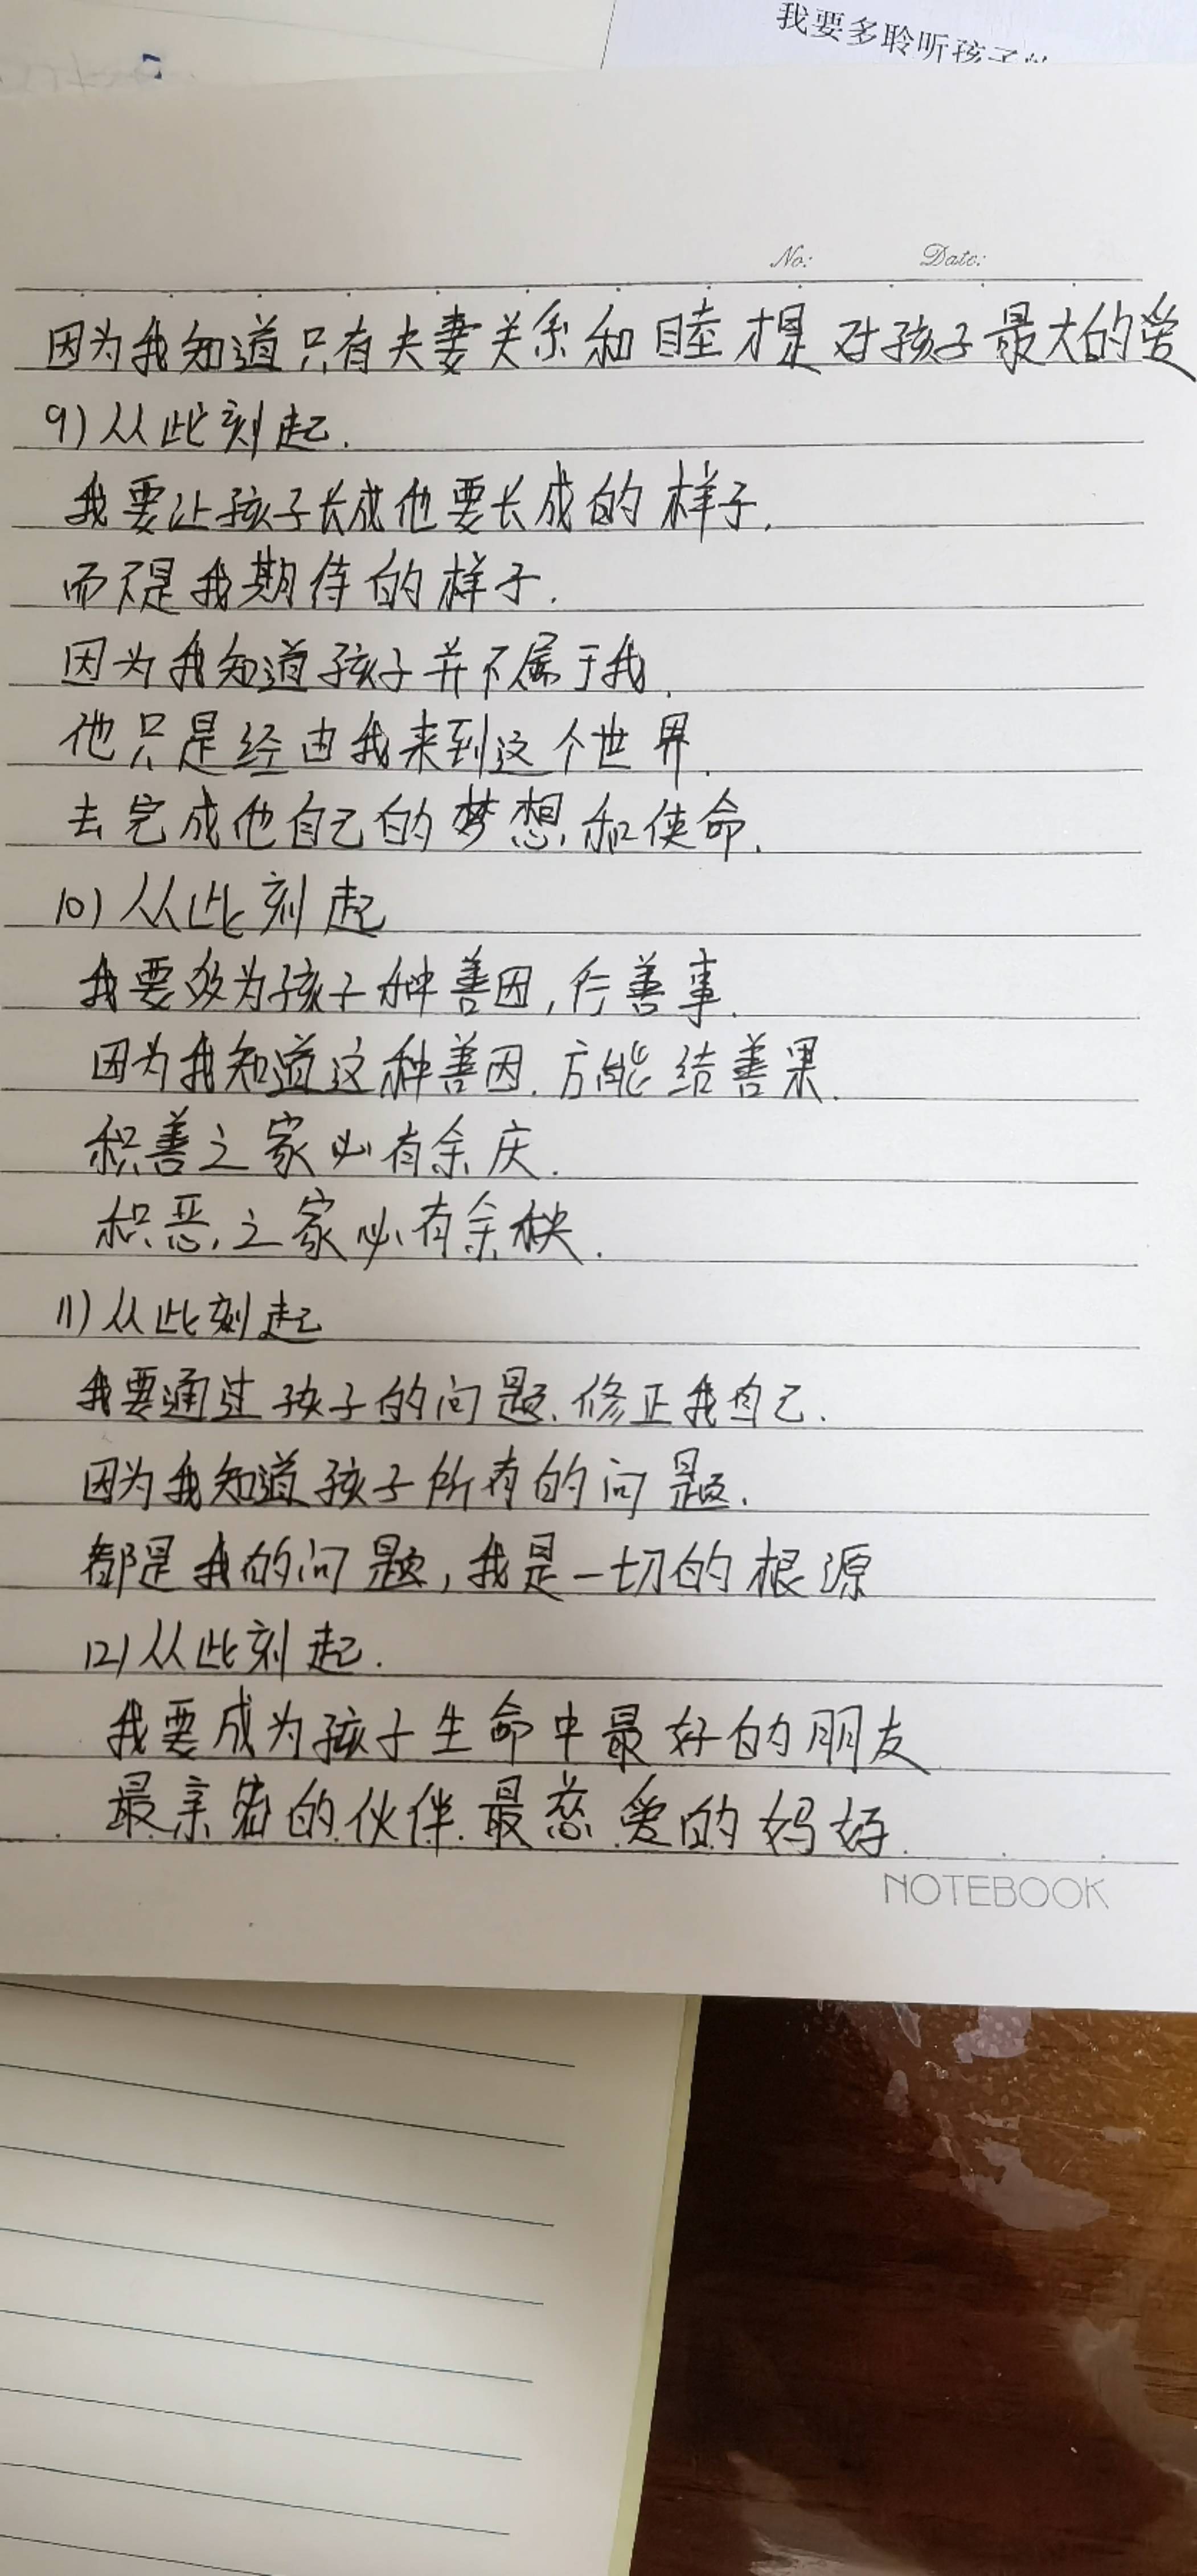 我要多聆听孩子
No: Date:
因为我知道只有夫妻关系和睦才是对孩子最大的爱
9)从此刻起.
我要让孩子长成他要长成的样子.
而不是我期待的样子.
因为我知道孩子并不属于我.
他只是经由我来到这个世界.
去完成他自己的梦想和使命.
10)从此刻起
我要多为孩子种善因,行善事.
因为我知道这种善因.方能结善果.
积善之家必有余庆.
积恶之家必有余秧.
11)从此刻起
我要通过孩子的问题.修正我自己.
因为我知道孩子所有的问题.
都是我的问题,我是一切的根源
12)从此刻起.
我要成为孩子生命中最好的朋友
最亲密的伙伴.最慈爱的妈妈.
NOTEBOOK